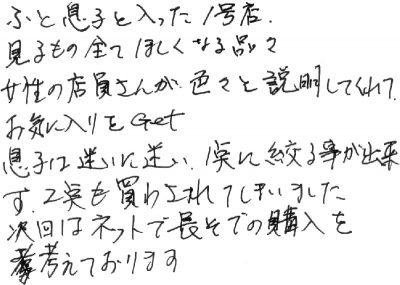 ふと息子と入った1号店.
見るもの全てほしくなる品々
女性の店員さんが色々と説明してくれて.
お気に入りをGet
息子は迷いに迷い.1点に絞る事が出来
ず.2点も買わされてしまいました
次回はネットで長そでの購入を
考えております